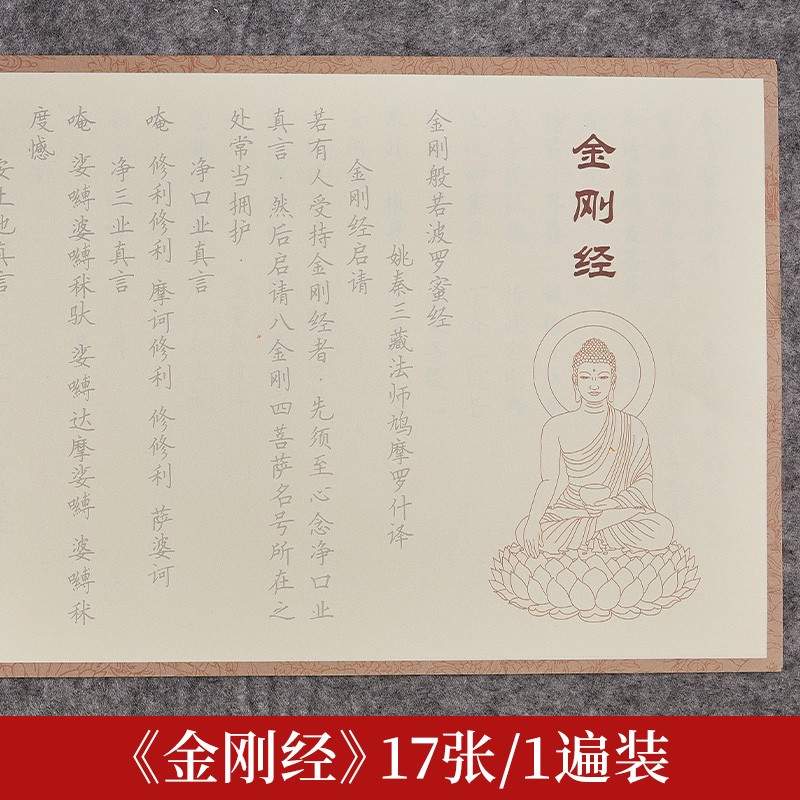 金刚经
金刚般若波罗蜜经
姚秦三藏法师鸠摩罗什译
金刚经启请
若有人受持金刚经者．先须至心念净口业
真言．然后启请八金刚四菩萨名号所在之
处常当拥护．
净口业真言
唵 修利修利 摩诃修利 修修利 萨婆诃
净三业真言
唵 娑嚩婆嚩秫驮 娑嚩达摩娑嚩 婆嚩秫
度憾
安土地真言
《金刚经》17张/1遍装